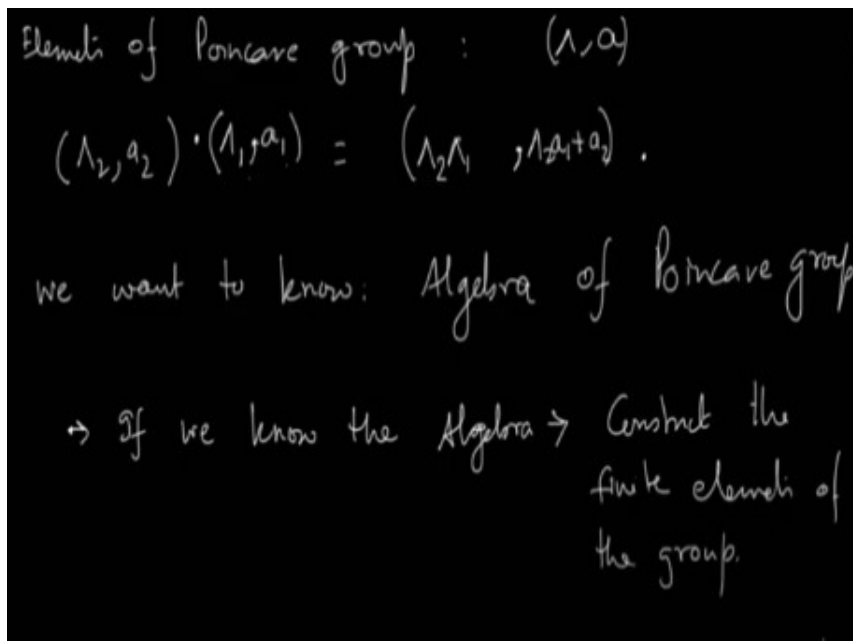 Elements of Poincare group : (Λ, a)
(Λ₂, a₂) · (Λ₁, a₁) = (Λ₂Λ₁ , Λ₂a₁+a₂) .
we want to know: Algebra of Poincare group
→ If we know the Algebra → Construct the
finite elements of
the group.